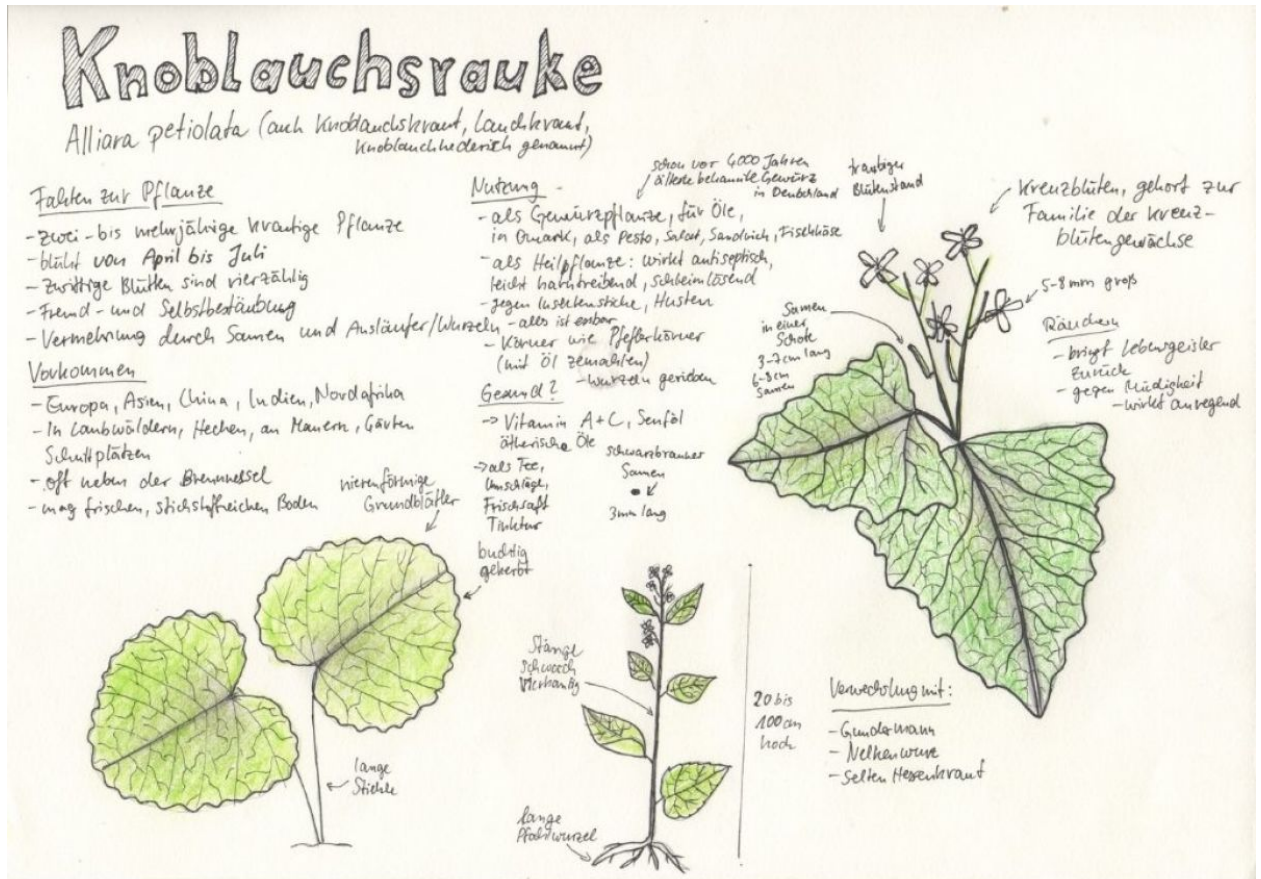 Knoblauchsrauke
Alliara petiolata (auch Knoblauchskraut, Lauchkraut,
Knoblauchhederich genannt)
Fakten zur Pflanze
- zwei- bis mehrjährige krautige Pflanze
- blüht von April bis Juli
- zwittrige Blüten sind vierzählig
- Fremd- und Selbstbestäubung
- Vermehrung durch Samen und Ausläufer/Wurzeln
Vorkommen
- Europa, Asien, China, Indien, Nordafrika
- In Laubwäldern, Hecken, an Mauern, Gärten
Schuttplätzen
- oft neben der Brennnessel
- mag frischen, stickstoffreichen Boden
nierenförmige
Grundblätter
buchtig
gekerbt
lange
Stiehle
Nutzung -
schon vor 4000 Jahren
älteste bekannte Gewürz
in Deutschland
- als Gewürzpflanze, für Öle,
in Quark, als Pesto, Salat, Sandwich, Frischkäse
- als Heilpflanze: wirkt antiseptisch,
leicht harntreibend, schleimlösend
- gegen Insektenstiche, Husten
- alles ist essbar
- Körner wie Pfefferkörner
(mit Öl zemahlen)
- Wurzeln gerieben
Gesund?
-> Vitamin A+C, Senföl
ätherische Öle
-> als Tee,
Umschläge,
Frischsaft
Tinktur
schwarzbrauner
Samen
3mm lang
Stängel
schwach
vierkantig
lange
Pfahlwurzel
20 bis
100 cm
hoch
traubiger
Blütenstand
Kreuzblüten, gehört zur
Familie der Kreuz-
blütengewächse
5-8 mm groß
Samen
in einer
Schote
3-7cm lang
6-8cm
Samen
Räuchern
- bringt Lebensgeister
zurück
- gegen Müdigkeit
- wirkt anregend
Verwechslung mit:
- Gundermann
- Nelkenwurz
- selten Hexenkraut